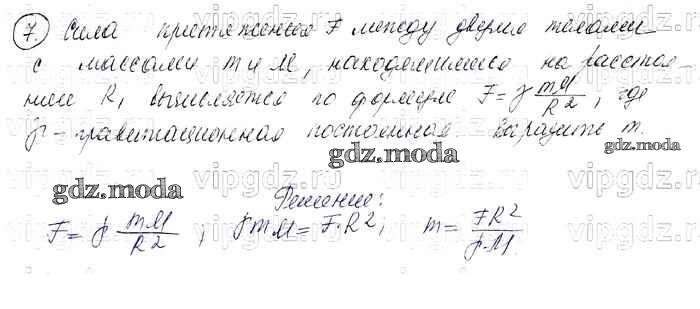 7. Сила притяжения F между двумя телами
с массами m и M, находящимися на расстоя-
нии R, вычисляется по формуле F = γ mM/R², где
γ - гравитационная постоянная. Выразите m.
gdz.moda
gdz.moda
gdz.moda
Решение:
F = γ mM/R² ; γmM = F·R²; m = FR²/γ·M
vipgdz.ru